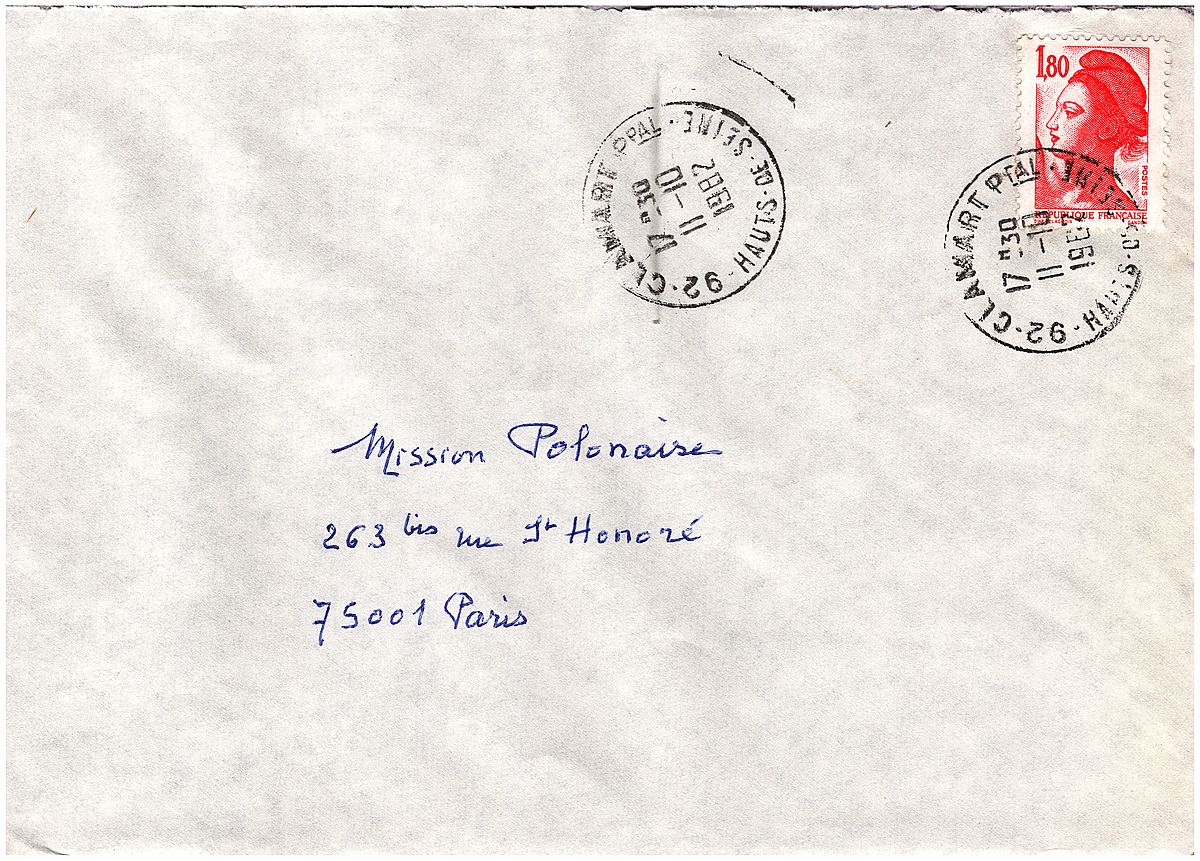 1,80
POSTES
REPUBLIQUE FRANÇAISE
CLAMART PPAL
17 H 30
11-10
1982
92 · HAUTS-DE-SEINE
CLAMART PPAL
17 H 30
11-10
198
92 · HAUTS-DE-SEINE
Mission Polonaise
263 bis rue St Honoré
75001 Paris